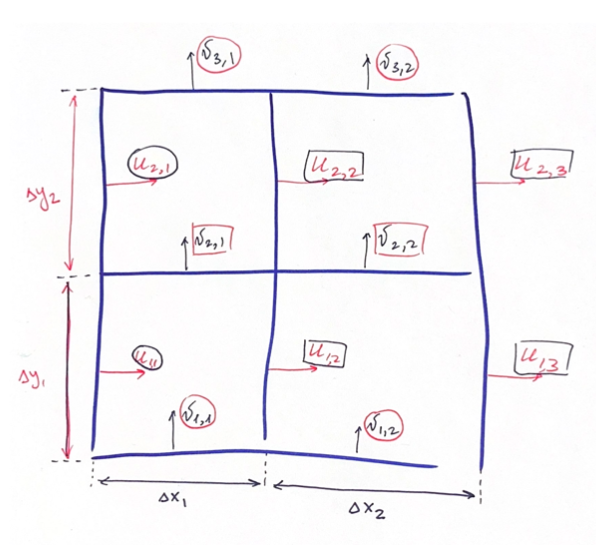 v3,1 v3,2
u2,1 u2,2 u2,3
Δy2
v2,1 v2,2
u11 u1,2 u1,3
Δy1
v1,1 v1,2
Δx1 Δx2